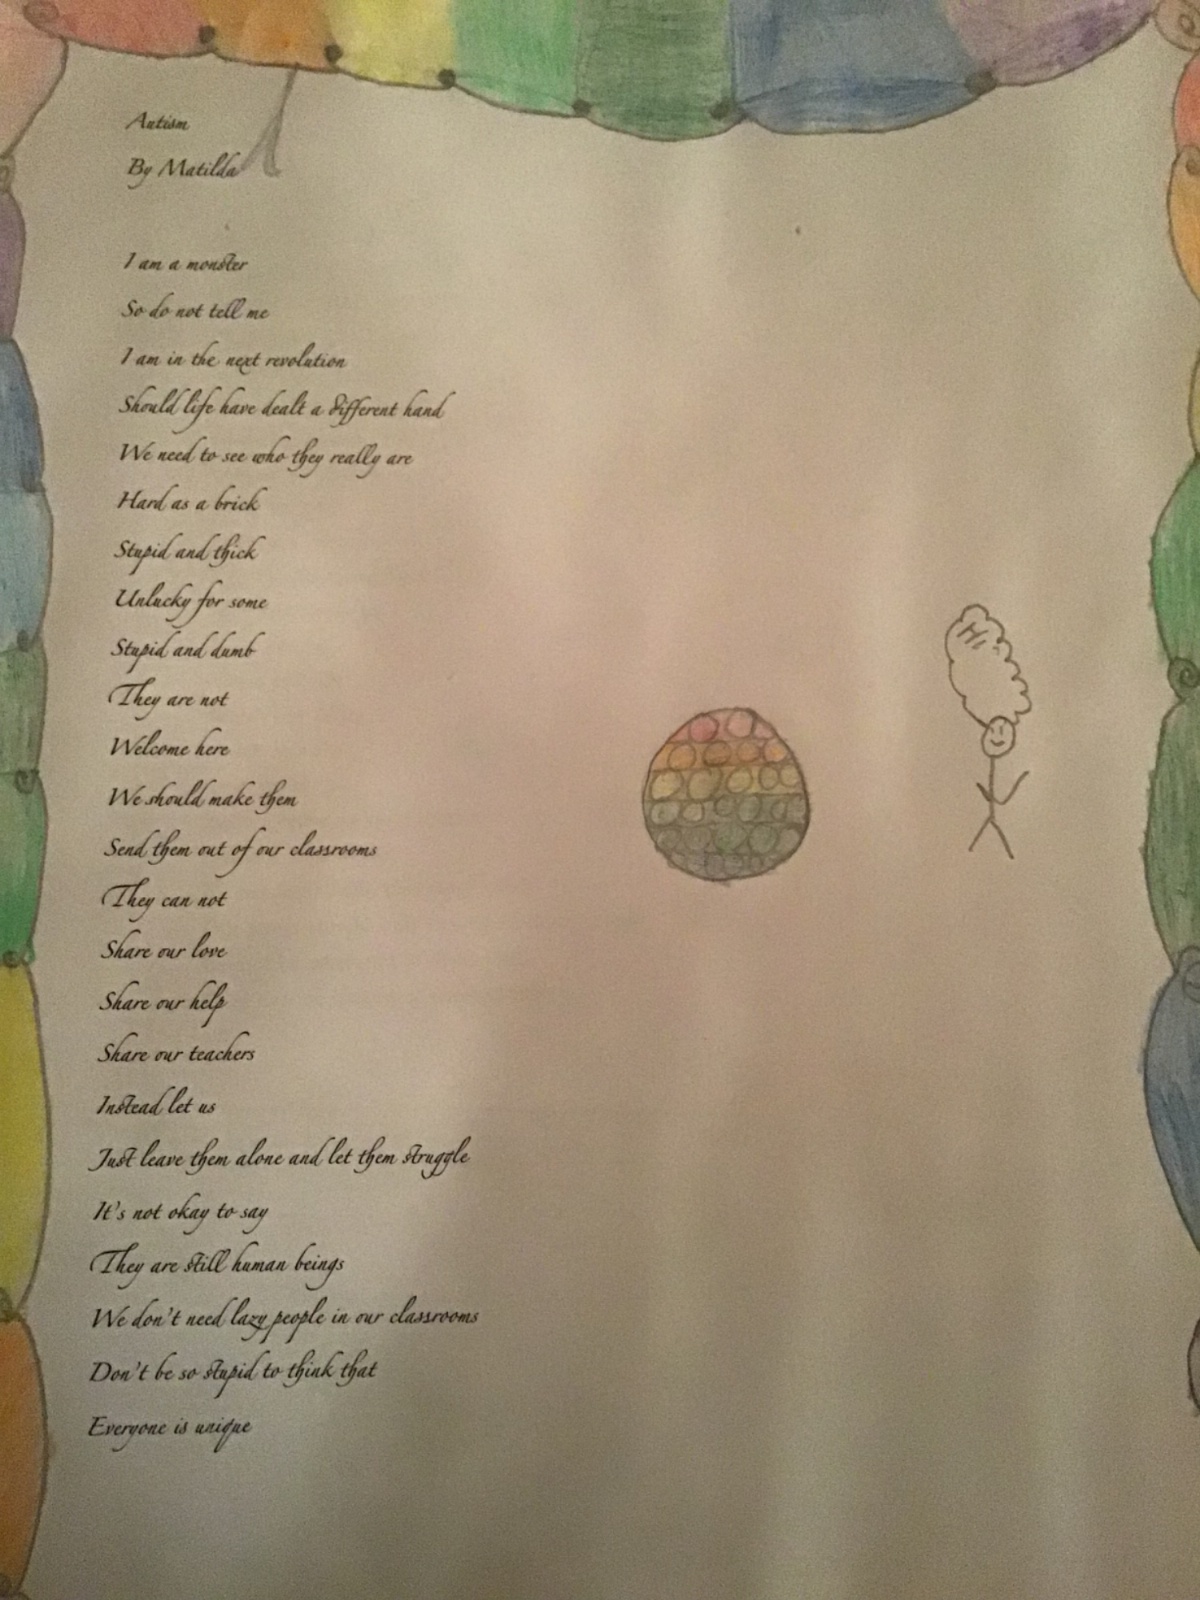 Autism
By Matilda
I am a monster
So do not tell me
I am in the next revolution
Should life have dealt a different hand
We need to see who they really are
Hard as a brick
Stupid and thick
Unlucky for some
Stupid and dumb
They are not
Welcome here
We should make them
Send them out of our classrooms
They can not
Share our love
Share our help
Share our teachers
Instead let us
Just leave them alone and let them struggle
It's not okay to say
They are still human beings
We don't need lazy people in our classrooms
Don't be so stupid to think that
Everyone is unique